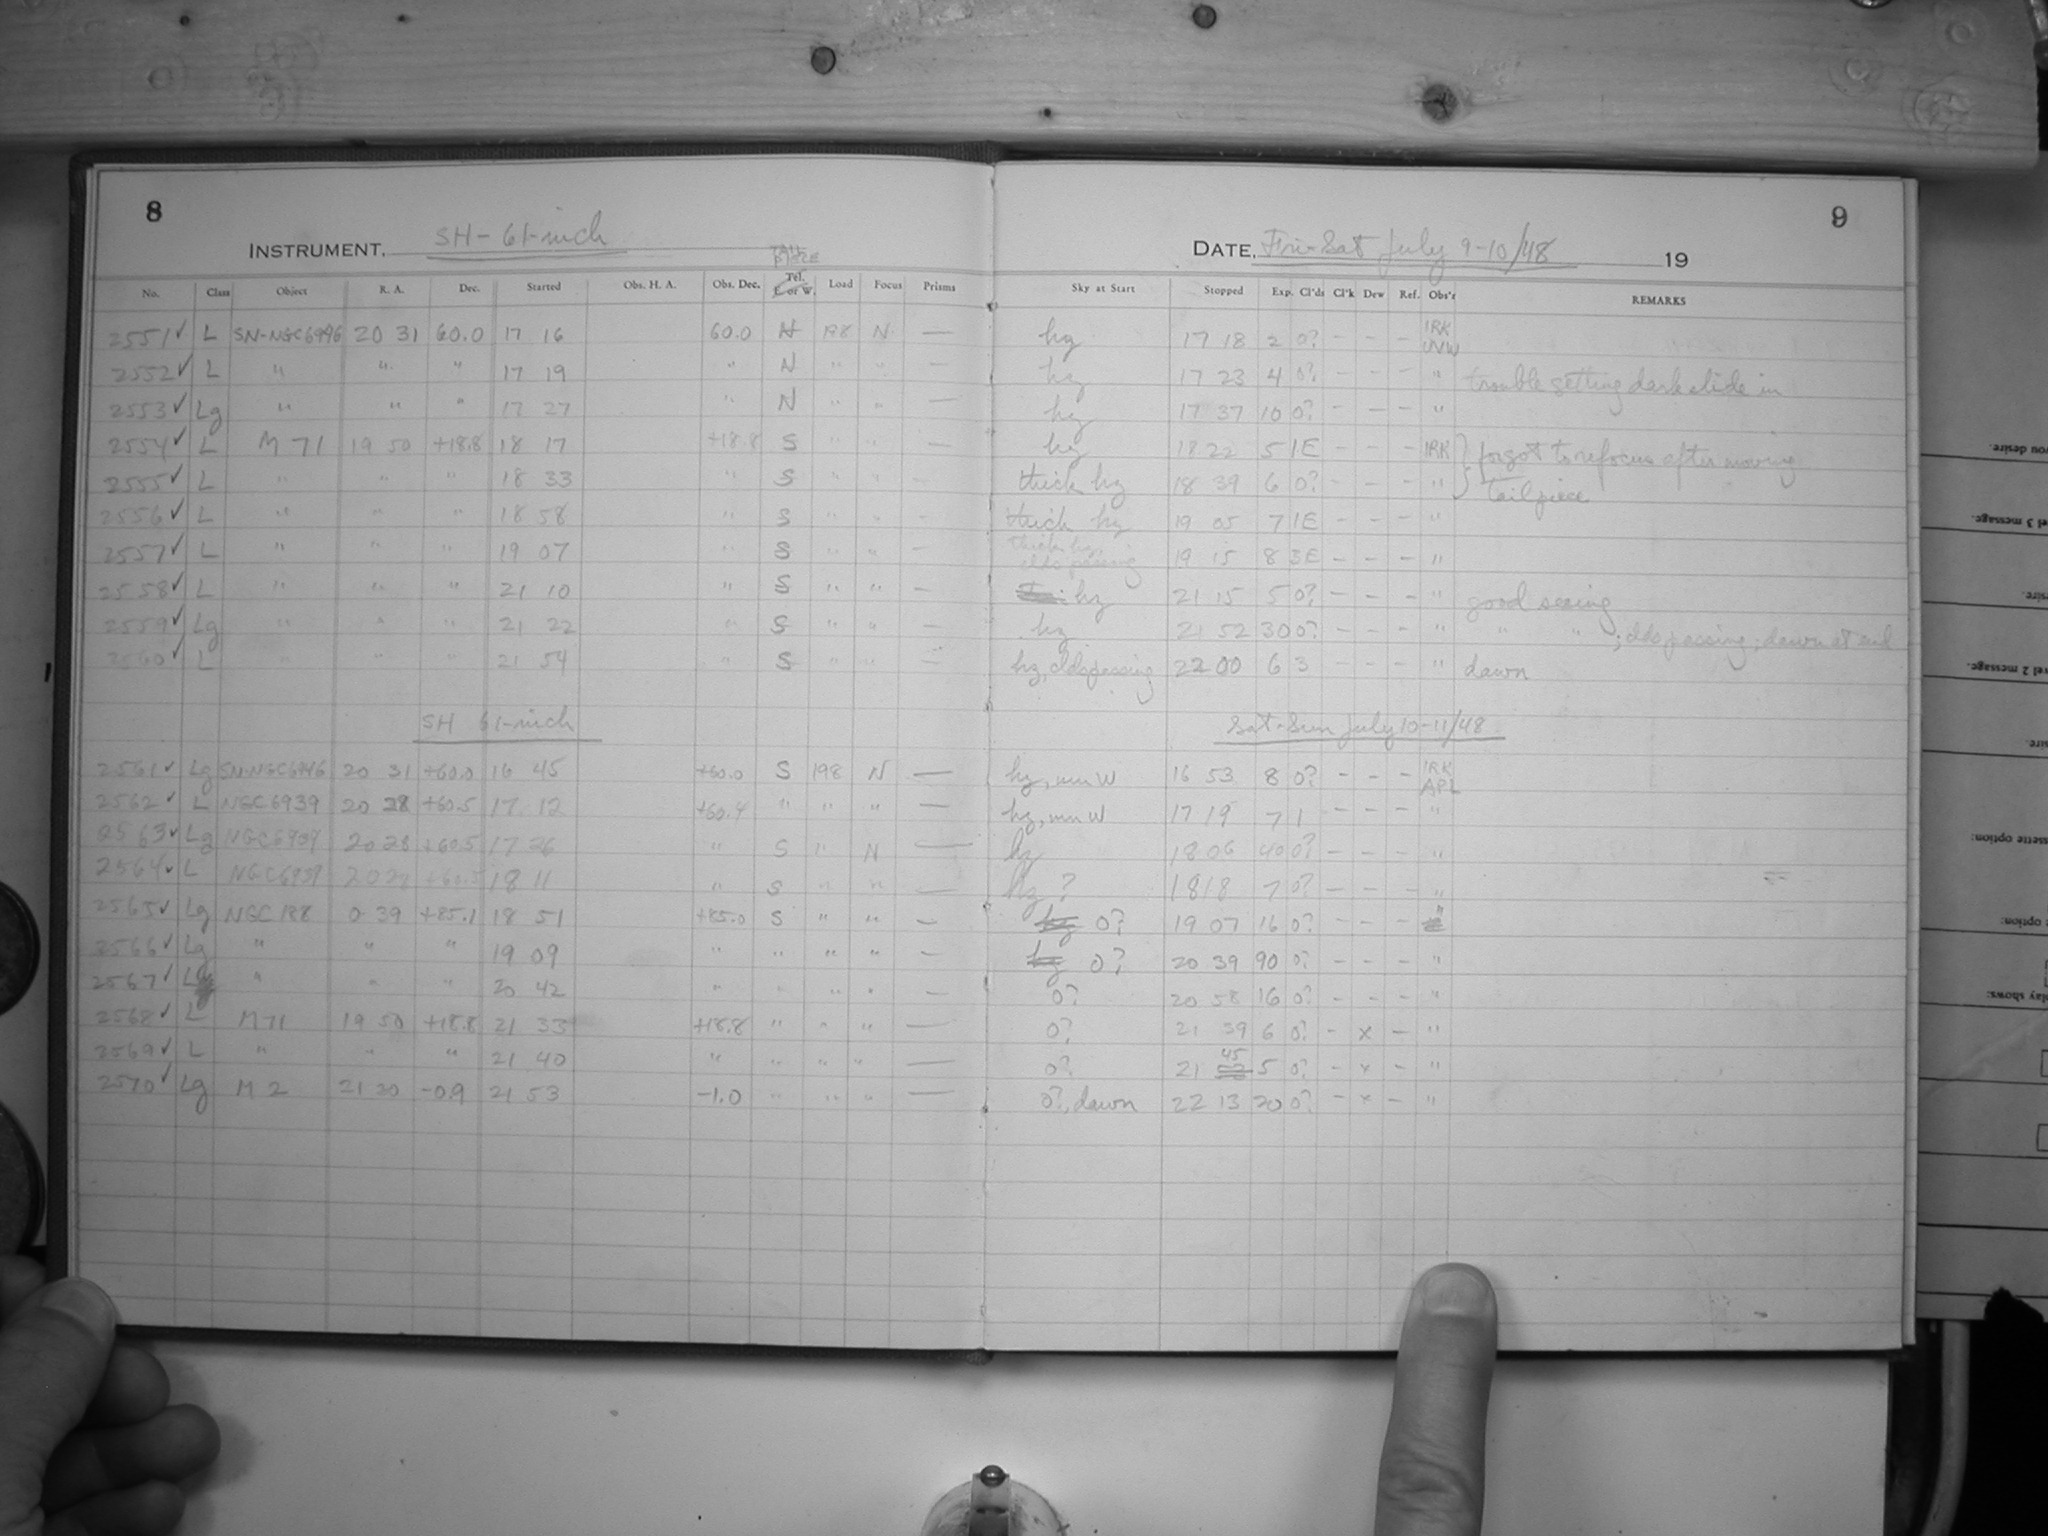 8
INSTRUMENT, SH-61-inch
TAIL PIECE
No. Class Object R. A. Dec. Started Obs. H. A. Obs. Dec. Tel. E. or W. Load Focus Prisms
2551 ✓ L SN-NGC6946 20 31 60.0 17 16 60.0 N 198 N —
2552 ✓ L " " " 17 19 " N " " —
2553 ✓ Lg " " " 17 27 " N " " —
2554 ✓ L M 71 19 50 +18.8 18 17 +18.8 S " " —
2555 ✓ L " " " 18 33 " S " " —
2556 ✓ L " " " 18 58 " S " " —
2557 ✓ L " " " 19 07 " S " " —
2558 ✓ L " " " 21 10 " S " " —
2559 ✓ Lg " " " 21 22 " S " " —
2560 ✓ L " " " 21 54 " S " " —
SH 61-inch
2561 ✓ Lg SN-NGC6946 20 31 +60.0 16 45 +60.0 S 198 N —
2562 ✓ L NGC6939 20 28 +60.5 17 12 +60.4 " " " —
2563 ✓ Lg NGC6939 20 28 +60.5 17 26 " S " N —
2564 ✓ L NGC6939 20 28 +60.5 18 11 " S " " —
2565 ✓ Lg NGC 188 0 39 +85.1 18 51 +85.0 S " " —
2566 ✓ Lg " " " 19 09 " " " " —
2567 ✓ Lg " " " 20 42 " " " " —
2568 ✓ L M71 19 50 +18.8 21 33 +18.8 " " " —
2569 ✓ L " " " 21 40 " " " " —
2570 ✓ Lg M 2 21 30 -0.9 21 53 -1.0 " " " —
9
DATE, Fri-Sat July 9-10/48 19
Sky at Start Stopped Exp. Cl'ds Cl'k Dew Ref. Obs'r REMARKS
hz 17 18 2 0? - - - IRK
UVW
hz 17 23 4 0? - - - " trouble getting dark slide in
hz 17 37 10 0? - - - "
hz 18 22 5 1E - - - IRK forgot to refocus after moving
thick hz 18 39 6 0? - - - " tailpiece
thick hz 19 05 7 1E - - - "
thick hz, clds passing 19 15 8 3E - - - "
hz 21 15 5 0? - - - " good seeing
hz 21 52 30 0? - - - " " " ; clds passing; dawn at end
hz, clds passing 22 00 6 3 - - - " dawn
Sat-Sun July 10-11/48
hz, mn W 16 53 8 0? - - - IRK
APL
hz, mn W 17 19 7 1 - - - "
hz 18 06 40 0? - - - "
hz ? 18 18 7 0? - - - "
hz 0? 19 07 16 0? - - - "
hz 0? 20 39 90 0? - - - "
0? 20 58 16 0? - - - "
0? 21 39 6 0? - x - "
0? 21 45 5 0? - x - "
0?, dawn 22 13 20 0? - x - "
you desire.
el 3 message.
sire.
vel 2 message.
sire.
ssette option:
option:
play shows: